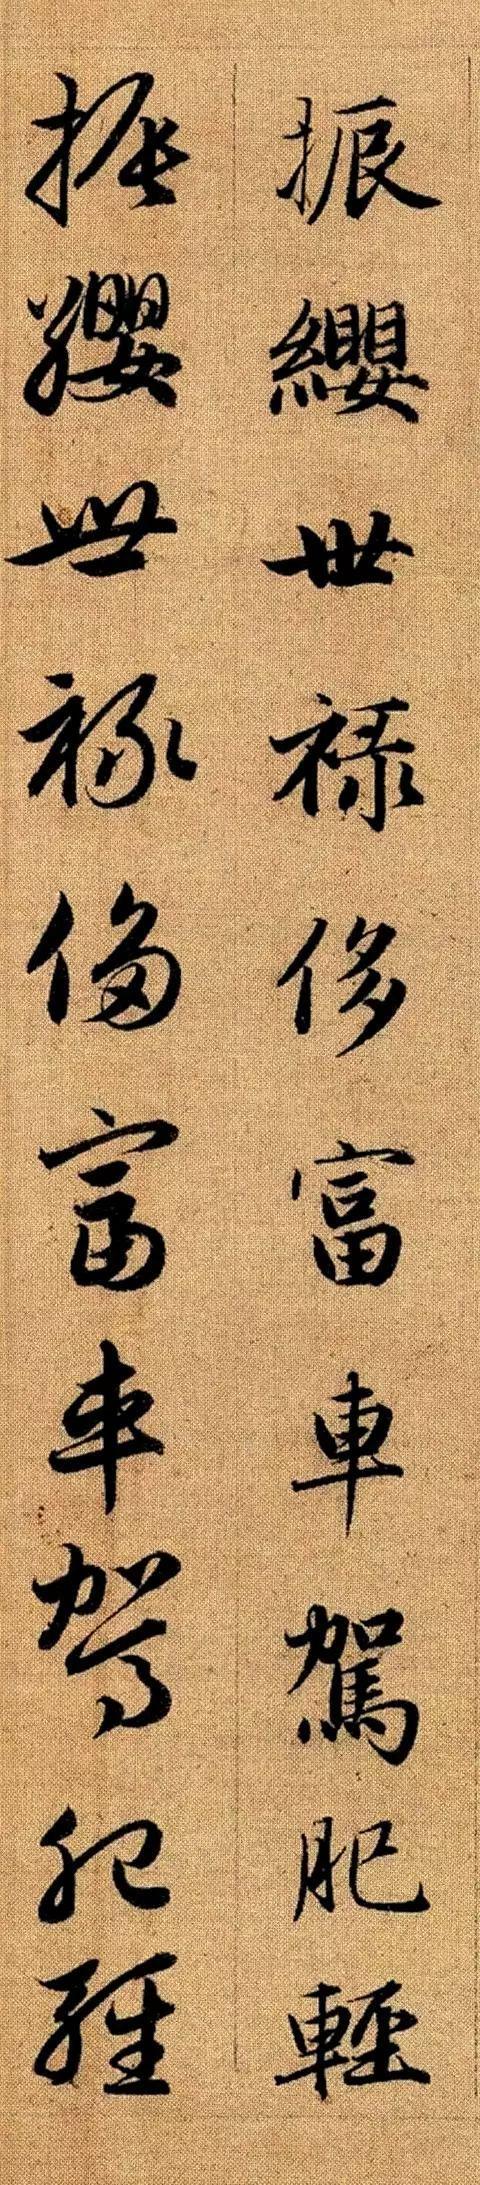 振纓世禄侈富車駕肥輕
振纓世禄侈富車駕肥輕